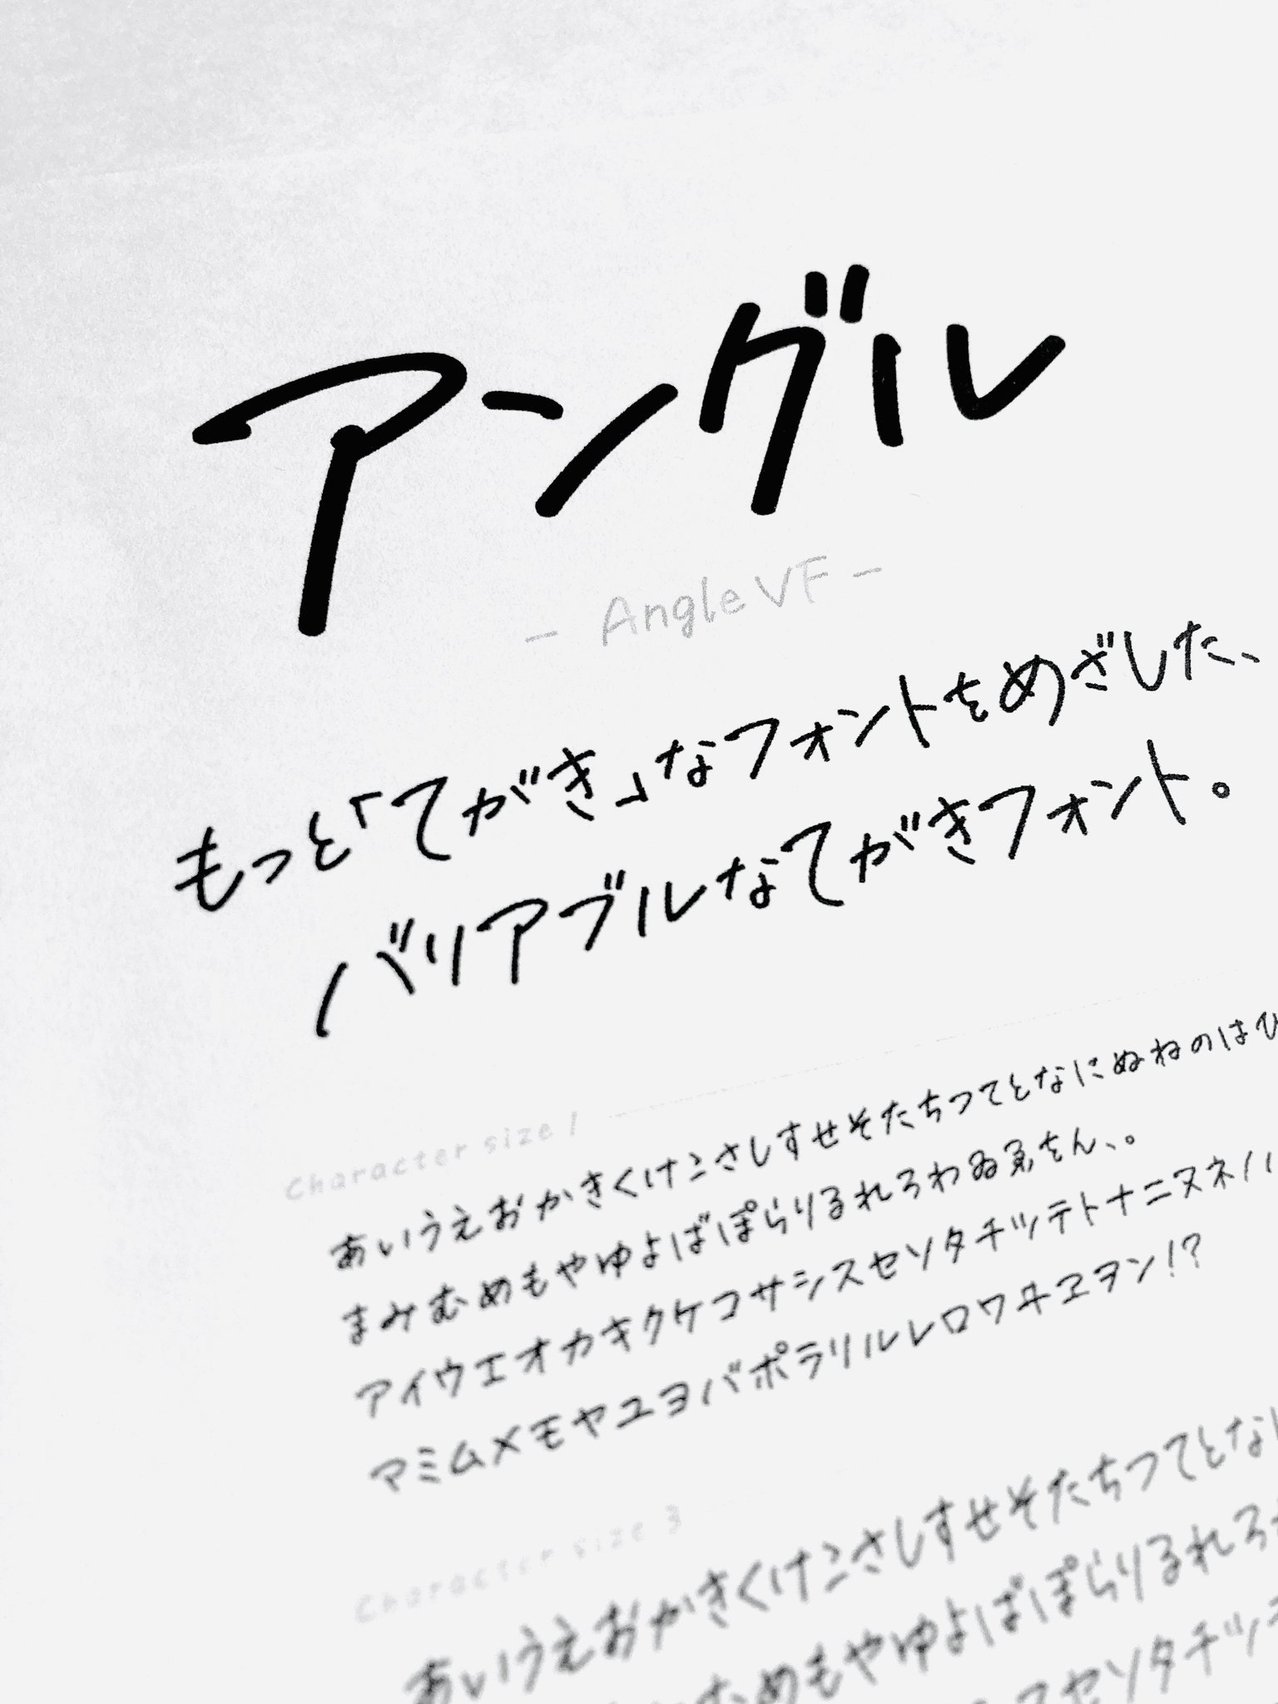 アングル
- Angle VF -
もっと「てがき」なフォントをめざした、
バリアブルなてがきフォント。
Character size 1
あいうえおかきくけこさしすせそたちつてとなにぬねのはひ
まみむめもやゆよばぽらりるれろわゐゑをん、。
アイウエオカキクケコサシスセソタチツテトナニヌネハ
マミムメモヤユヨバポラリルレロワヰヱヲン!?
Character size 3
あいうえおかきくけこさしすせそたちつてとなに
むめもやゆよばぽらりるれろ
スセソタチツテ